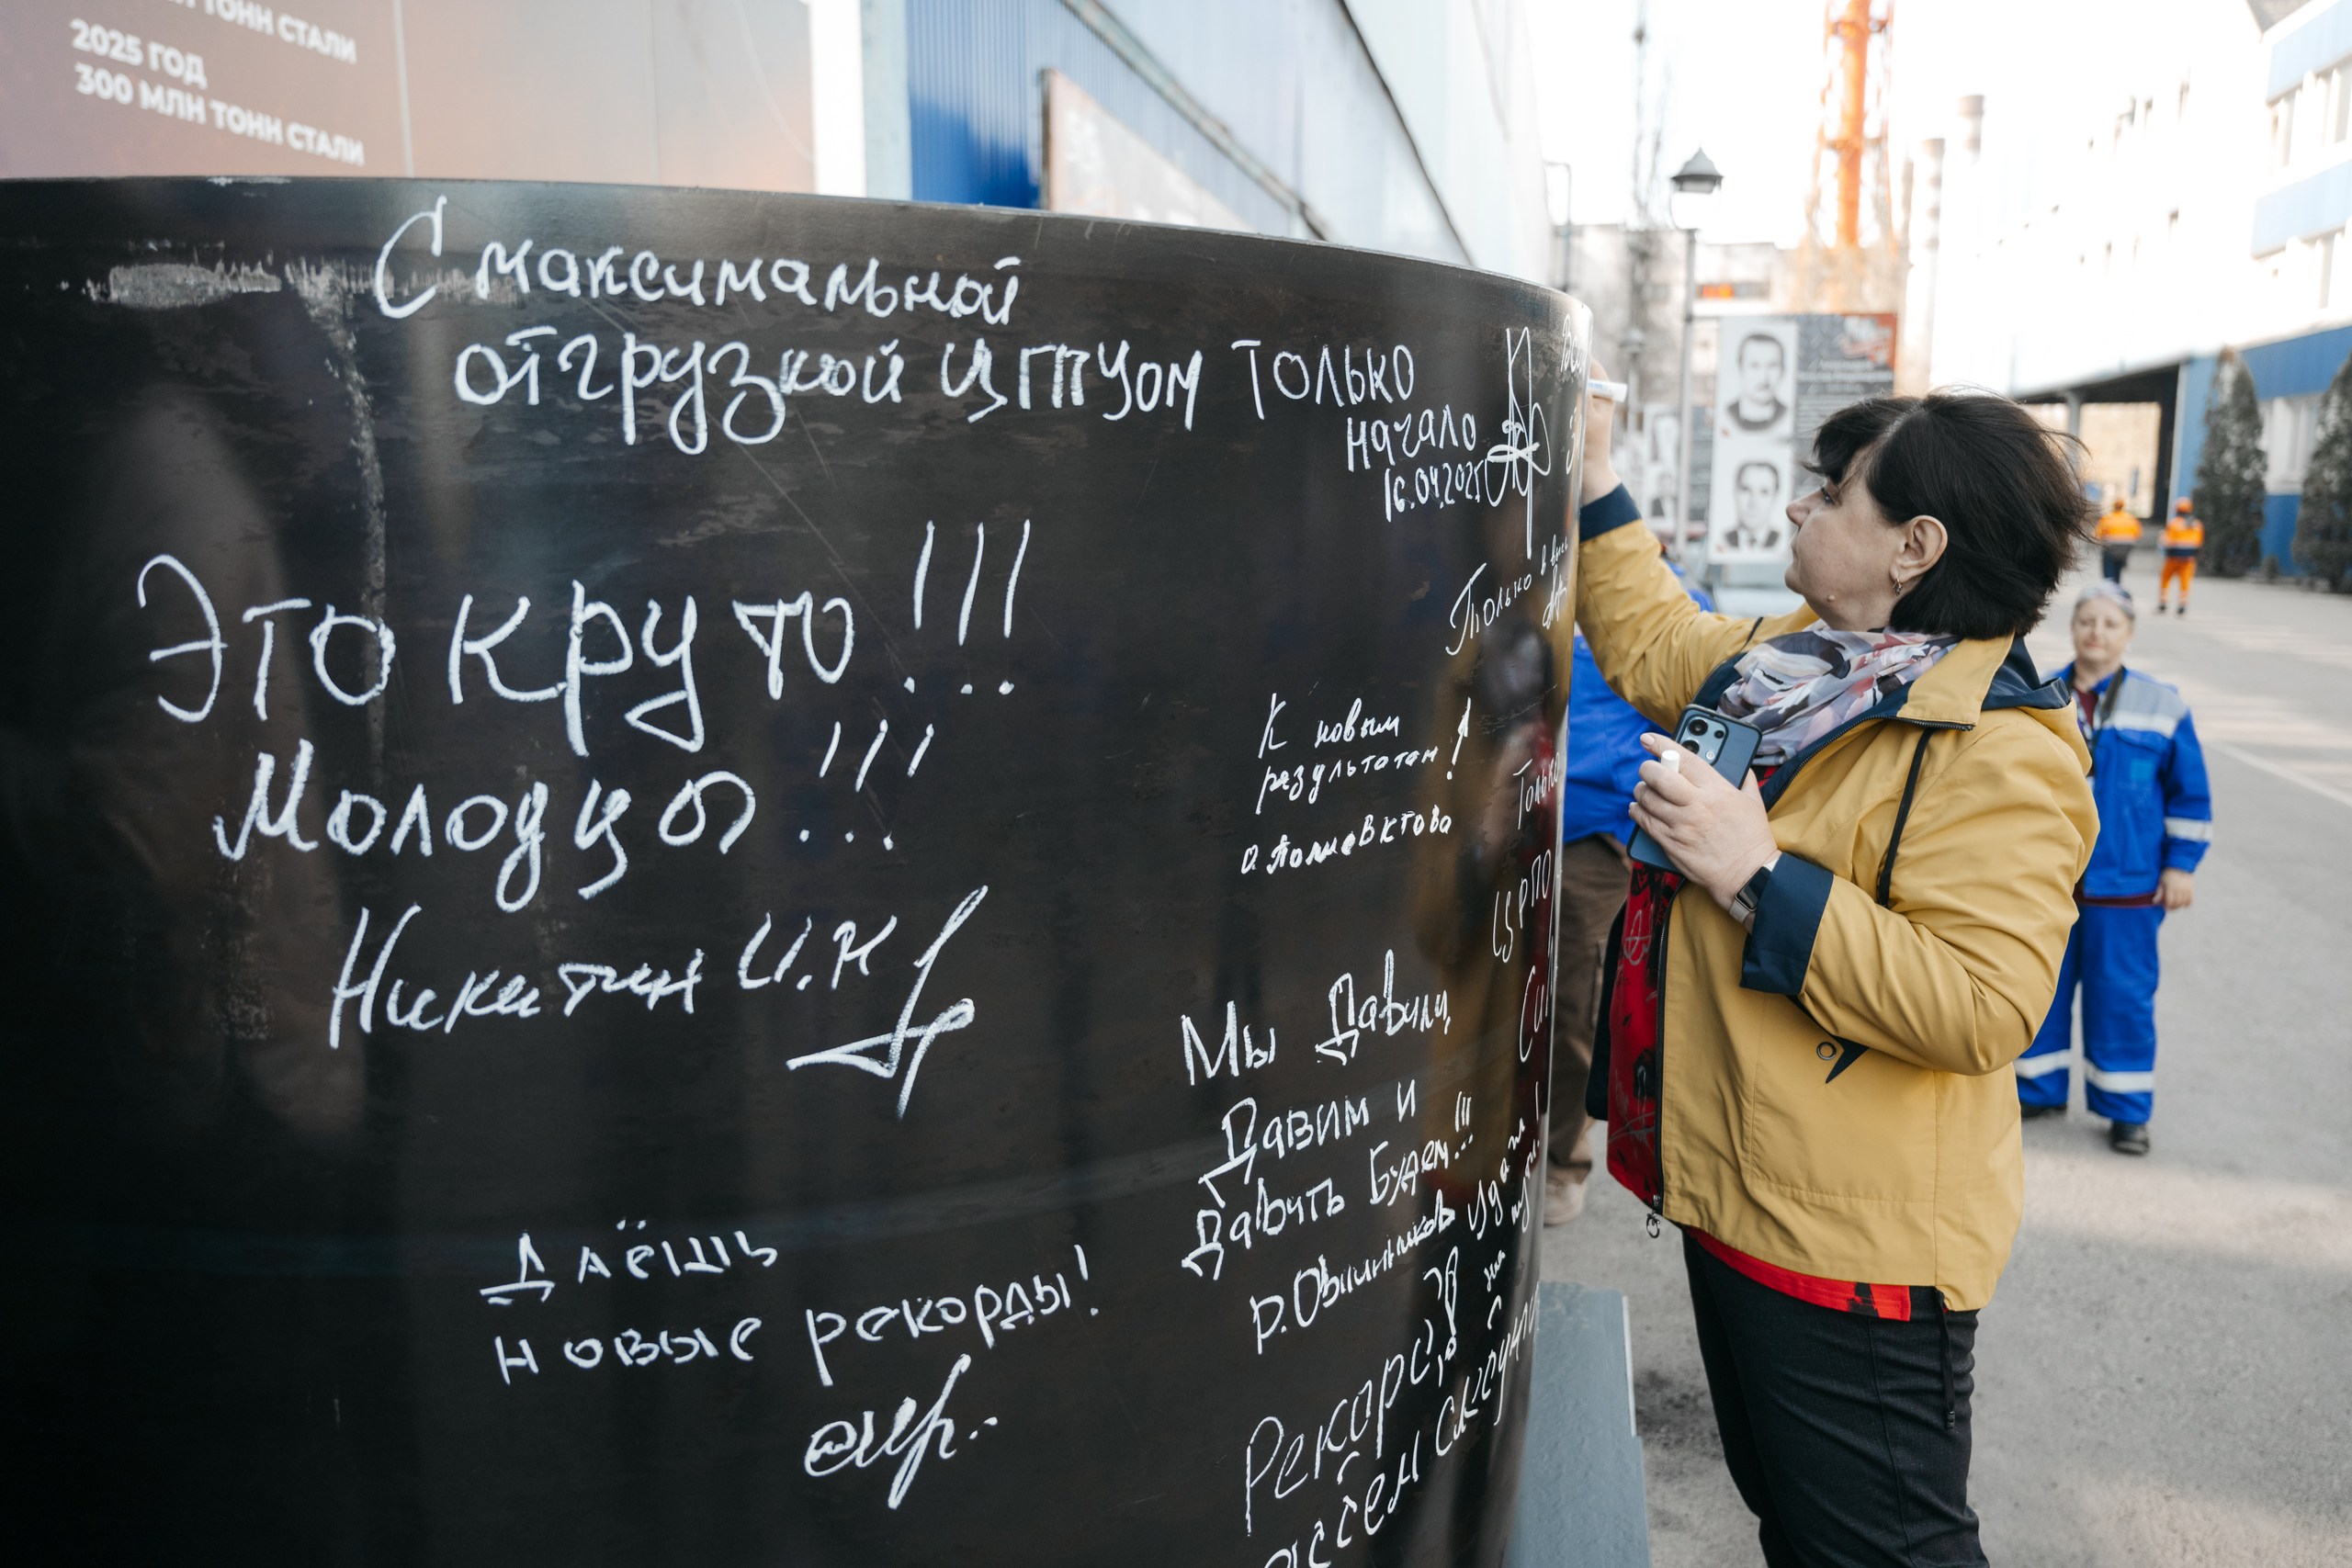 ТОНН СТАЛИ
2025 ГОД
300 МЛН ТОНН СТАЛИ
С максимальной
отгрузкой ЦГПУом только
начало
16.04.2025
Это круто!!!
Молодцы!!!
Никитин И.К
Даёшь
новые рекорды!
Только
К новым
результатам!
Только
ЦРПО
Мы Давили,
Давим и
Давить Будем!!!
р.Овчинников
Удачи
Рекорд